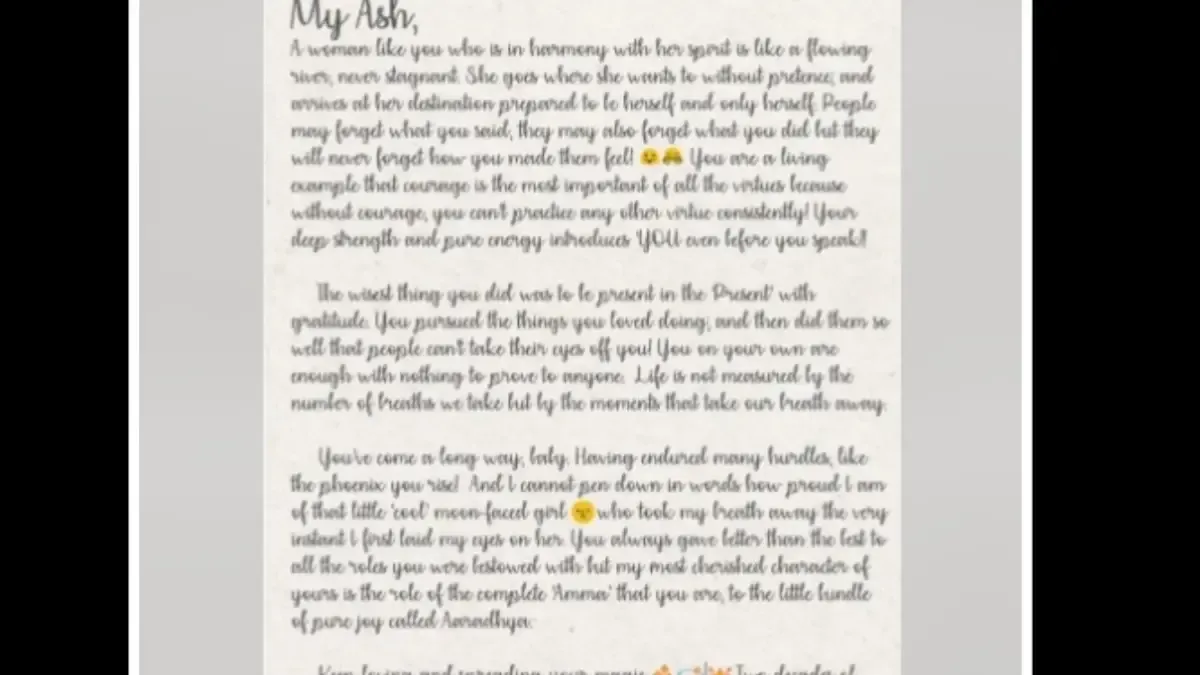 My Ash,
A woman like you who is in harmony with her spirit is like a flowing
river, never stagnant. She goes where she wants to without pretence, and
arrives at her destination prepared to be herself and only herself. People
may forget what you said, they may also forget what you did but they
will never forget how you made them feel! You are a living
example that courage is the most important of all the virtues because
without courage, you can't practice any other virtue consistently! Your
deep strength and pure energy introduces 'YOU' even before you speak!!
The wisest thing you did was to be present in the 'Present' with
gratitude. You pursued the things you loved doing; and then did them so
well that people can't take their eyes off you! You on your own are
enough with nothing to prove to anyone. Life is not measured by the
number of breaths we take but by the moments that take our breath away.
You've come a long way, baby. Having endured many hurdles, like
the phoenix you rise! And I cannot pen down in words how proud I am
of that little 'cool' moon-faced girl 🌝 who took my breath away the very
instant I first laid my eyes on her. You always gave better than the best to
all the roles you were bestowed with but my most cherished character of
yours is the role of the complete 'Amma' that you are, to the little bundle
of pure joy called Aaradhya.
Keep loving and spreading your magic Two decades of